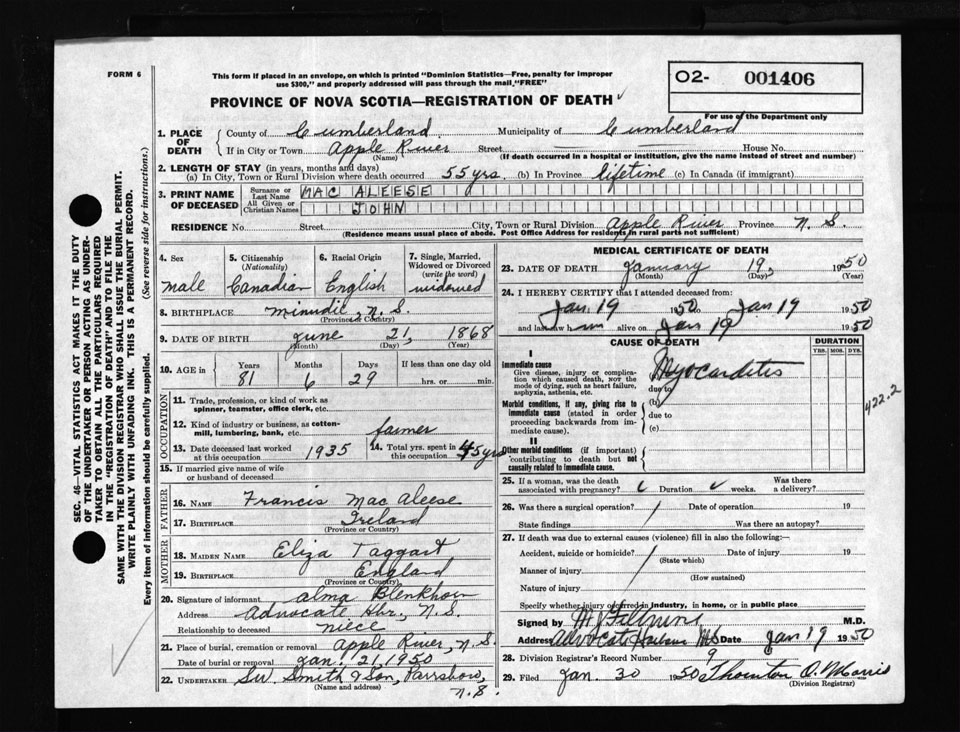 FORM 6
This form if placed in an envelope, on which is printed "Dominion Statistics—Free, penalty for improper
use $300," and properly addressed will pass through the mail, "FREE"
O2- 001406
For use of the Department only
PROVINCE OF NOVA SCOTIA—REGISTRATION OF DEATH
1. PLACE OF DEATH { County of Cumberland Municipality of Cumberland
If in City or Town Apple River Street House No.
(Name) (If death occurred in a hospital or institution, give the name instead of street and number)
2. LENGTH OF STAY (in years, months and days)
(a) In City, Town or Rural Division where death occurred 55 yrs. (b) In Province lifetime (c) In Canada (if immigrant)
3. PRINT NAME OF DECEASED { Surname or Last Name MAC ALEESE
All Given or Christian Names JOHN
RESIDENCE No. Street City, Town or Rural Division Apple River Province N. S.
(Residence means usual place of abode. Post Office Address for residents in rural parts not sufficient)
4. Sex 5. Citizenship (Nationality) 6. Racial Origin 7. Single, Married, Widowed or Divorced (write the word)
male Canadian English widowed
8. BIRTHPLACE Minudil, N. S.
(Province or Country)
9. DATE OF BIRTH June 21, 1868
(Month) (Day) (Year)
10. AGE in Years Months Days If less than one day old
81 6 29 hrs. or min.
OCCUPATION
11. Trade, profession, or kind of work as
spinner, teamster, office clerk, etc.
12. Kind of industry or business, as cotton-
mill, lumbering, bank, etc. farmer
13. Date deceased last worked at this occupation 1935 14. Total yrs. spent in this occupation 45 yrs
15. If married give name of wife
or husband of deceased
FATHER
16. NAME Francis Mac Aleese
17. BIRTHPLACE Ireland
(Province or Country)
MOTHER
18. MAIDEN NAME Eliza Taggart
19. BIRTHPLACE England
(Province or Country)
20. Signature of informant Alma Blenkhorn
Address Advocate Hbr, N. S.
Relationship to deceased niece
21. Place of burial, cremation or removal Apple River, N. S.
Date of burial or removal Jan. 21, 1950
22. UNDERTAKER Smith & Son, Parrsboro,
(Name and address) N. S.
MEDICAL CERTIFICATE OF DEATH
23. DATE OF DEATH January 19, 1950
(Month) (Day) (Year)
24. I HEREBY CERTIFY that I attended deceased from:
Jan. 19 1950 to Jan 19 1950
and last saw him alive on Jan 19 1950
CAUSE OF DEATH DURATION
YRS. MOS. DYS.
I
Immediate cause Myocarditis
Give disease, injury or complica-
tion which caused death, NOT the
mode of dying, such as heart failure,
asphyxia, asthenia, etc.
(a)
due to
Morbid conditions, if any, giving rise to
immediate cause (stated in order
proceeding backwards from im-
mediate cause).
(b)
due to
(c)
422.2
II
Other morbid conditions (if important)
contributing to death but not
causally related to immediate cause.
25. If a woman, was the death associated with pregnancy? Duration weeks. Was there a delivery?
26. Was there a surgical operation? Date of operation 19
State findings Was there an autopsy?
27. If death was due to external causes (violence) fill in also the following:—
Accident, suicide or homicide? Date of injury 19
(State which)
Manner of injury
(How sustained)
Nature of injury
Specify whether injury occurred in industry, in home, or in public place
Signed by M.D.
Address Advocate Harbour N S Date Jan 19 1950
28. Division Registrar's Record Number 9
29. Filed Jan. 30 1950 Thornton O. Morris
(Division Registrar)
SEC. 46—VITAL STATISTICS ACT MAKES IT THE DUTY
OF THE UNDERTAKER OR PERSON ACTING AS UNDER-
TAKER TO OBTAIN ALL THE PARTICULARS REQUIRED
IN THE "REGISTRATION OF DEATH" AND TO FILE THE
SAME WITH THE DIVISION REGISTRAR WHO SHALL ISSUE THE BURIAL PERMIT.
WRITE PLAINLY WITH UNFADING INK. THIS IS A PERMANENT RECORD.
Every item of information should be carefully supplied. (See reverse side for instructions.)